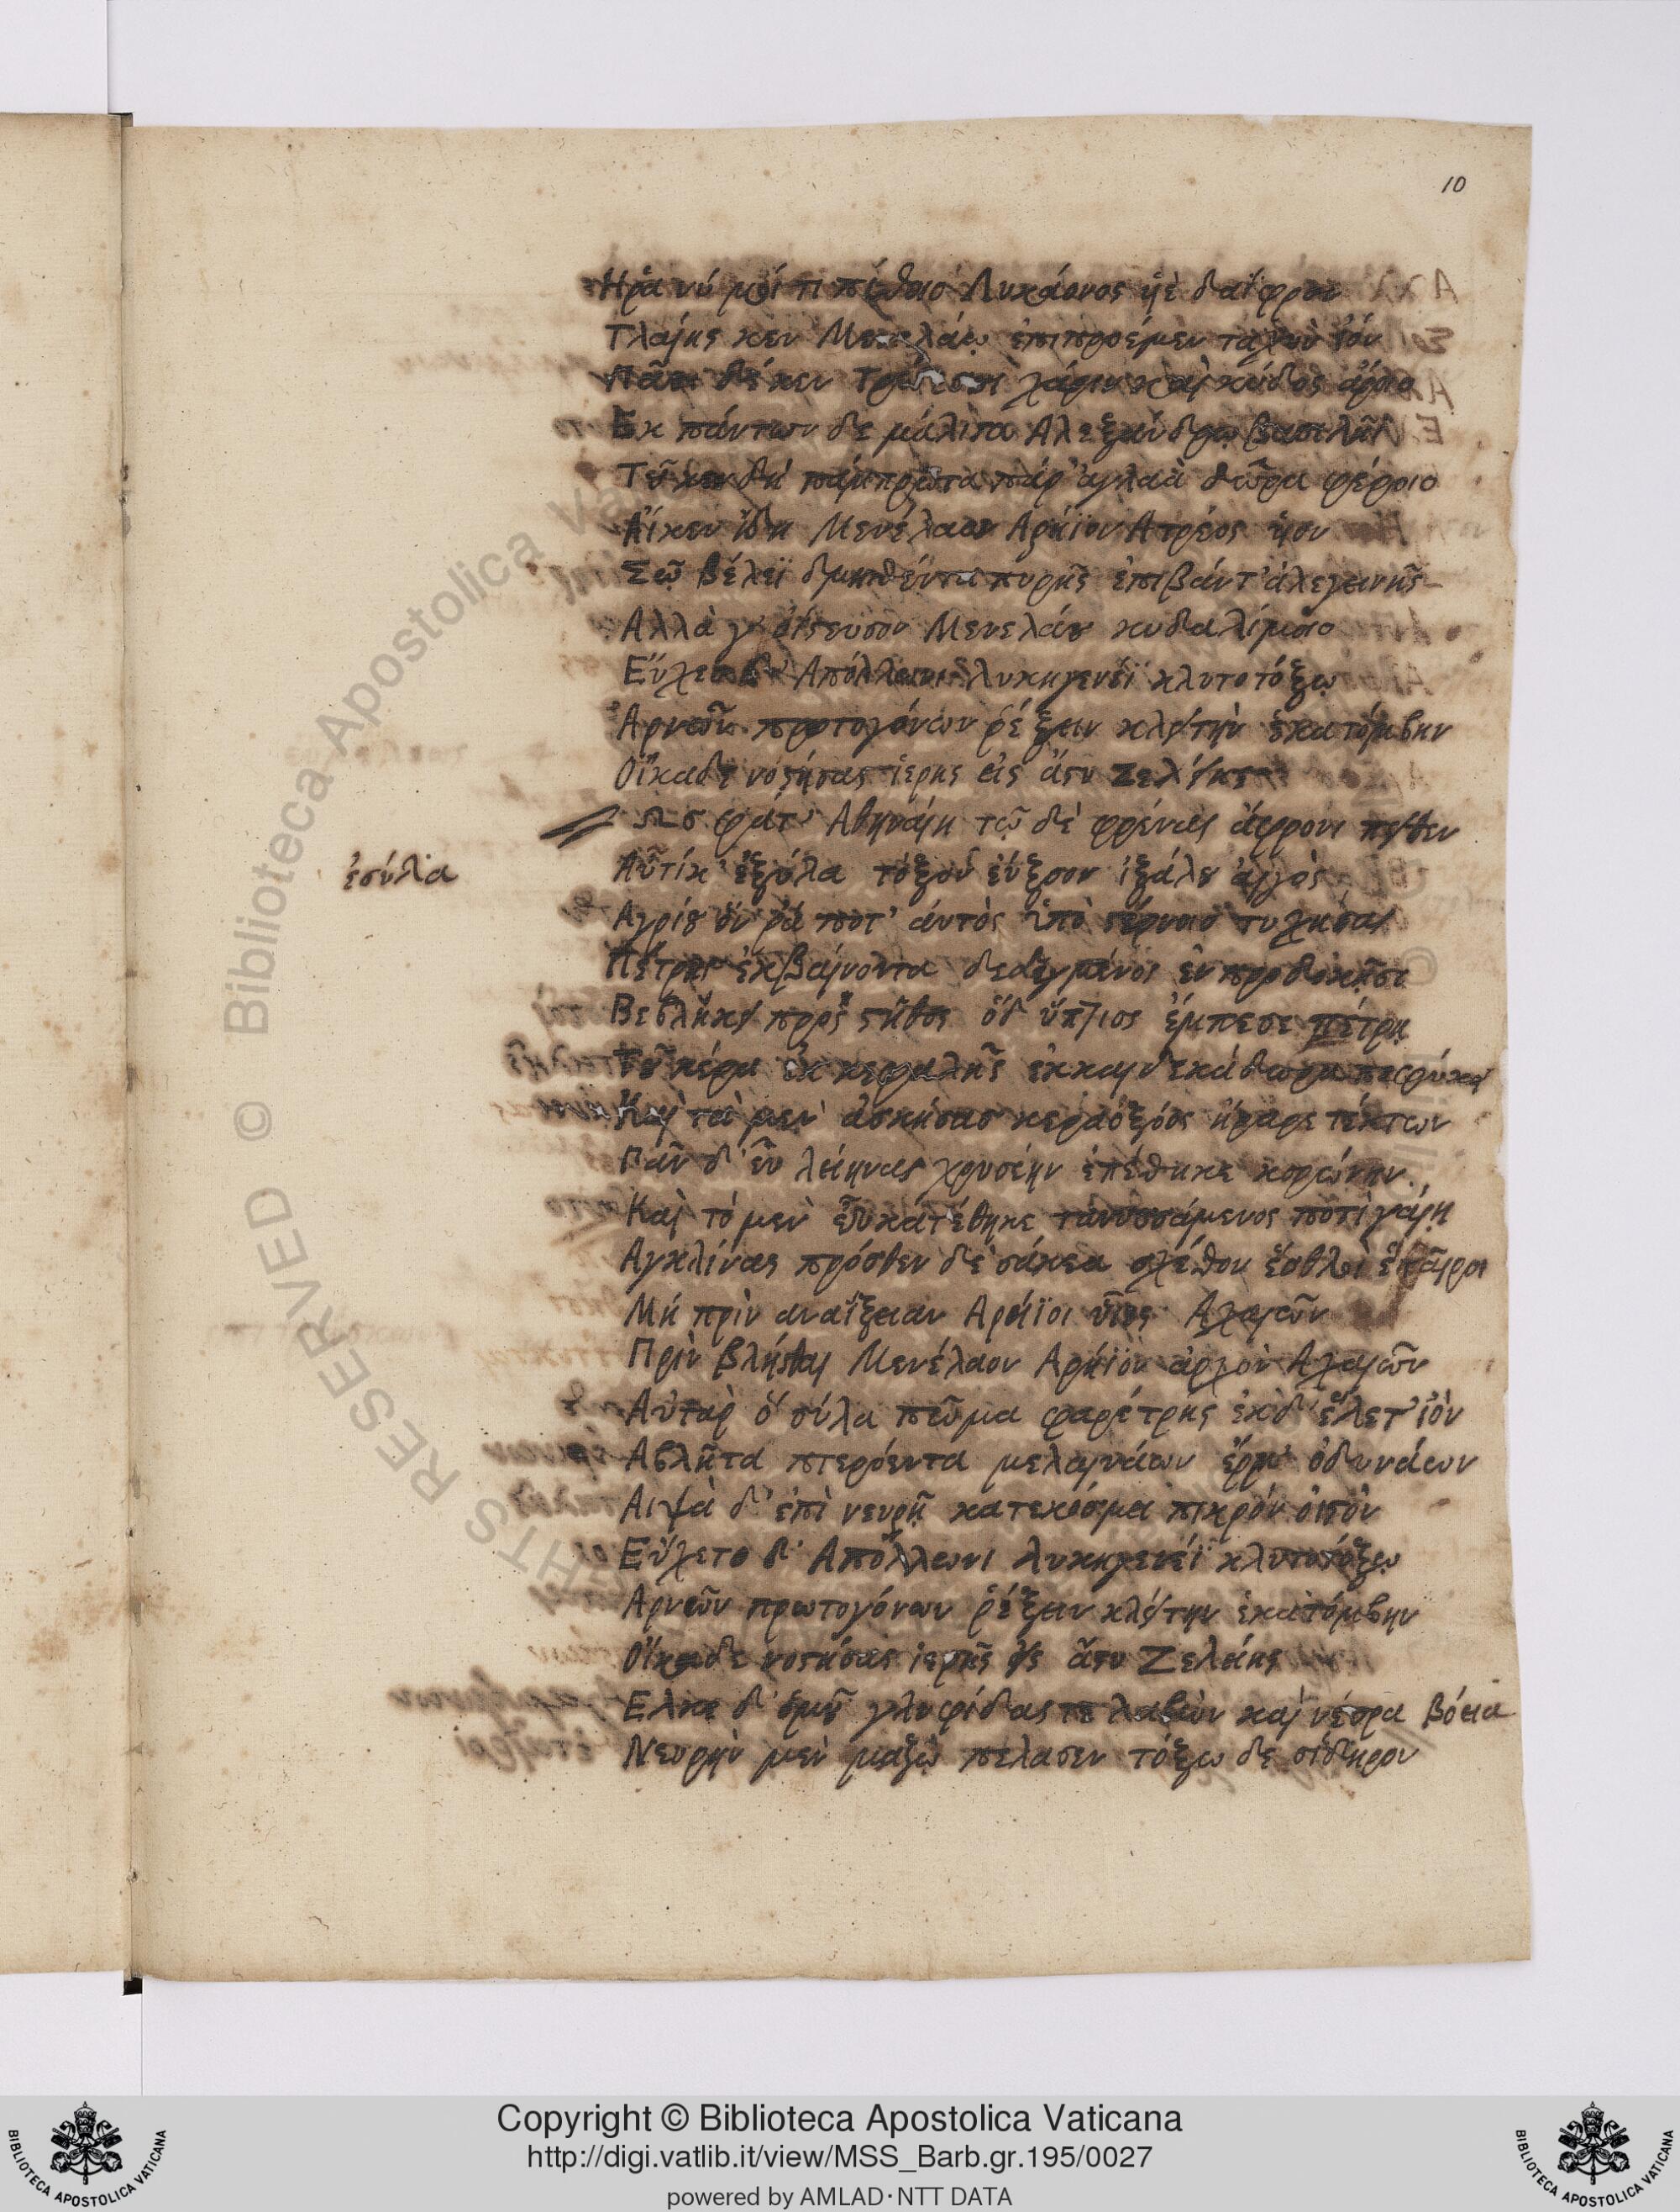 10
Ηρα νύ μοί τι πίθοιο Λυκάονος ὑϊὲ δαΐφρον
Τλαίης κεν Μενελάῳ ἐπιπροέμεν ταχὺν ἰόν
Πᾶσι δέ κεν Τρώεσσι χάριν καὶ κύδος ἄροιο
Εκ πάντων δε μάλιστα Αλεξάνδρῳ βασιλῆϊ
Τοῦ κεν δὴ πάμπρωτα πάρ' ἀγλαὰ δῶρα φέροιο
Αἴκεν ἴδῃ Μενέλαον Αρήϊον Ατρέος ὑιον
Σῷ βέλεϊ δμηθέντα πυρῆς ἐπιβάντ' ἀλεγεινῆς
Αλλὰ γ' ὀΐστευσον Μενελάου κυδαλίμοιο
Εὔχεο δ' Απόλλωνι λυκηγενέϊ κλυτοτόξῳ
Αρνῶν πρωτογόνων ῥέξειν κλειτὴν ἑκατόμβην
Οἴκαδε νοστήσας ἱερης εἰς ἄστυ Ζελείης
Ως φάτ' Αθηναίη τῷ δὲ φρένας ἄφρονι πεῖθεν
ἐσύλα
Αὐτίκ' ἐξύλα τόξον ἐύξοον ἰξάλου ἀιγὸς
Αγρίου ὅν ῥά ποτ' ἀυτὸς ὑπὸ στέρνοιο τυχήσας
Πέτρης ἐκβαίνοντα δεδεγμένος ἐν προδοκῇσι
Βεβλήκει πρὸς στῆθος ὅδ' ὕπτιος ἔμπεσε πέτρῃ
Τοῦ κέρα ἐκ κεφαλῆς ἑκκαιδεκάδωρα πεφύκει
Καὶ τὰ μὲν ἀσκήσας κεραοξόος ἤραρε τέκτων
Πᾶν δ' εὖ λειήνας χρυσέην ἐπέθηκε κορώνην
Καὶ τὸ μὲν εὖ κατέθηκε τανυσσάμενος ποτὶ γαίῃ
Αγκλίνας πρόσθεν δὲ σάκεα σχέθον ἔσθλοὶ ἑταῖροι
Μή πρὶν αναΐξειαν Αρήϊοι ὑῖες Αχαιῶν
Πρὶν βλῆσθαι Μενέλαον Αρήϊον ἀρχὸν Αχαιῶν
Αὐτὰρ ὁ σύλα πῶμα φαρέτρης ἐκ δ' ἕλετ' ἰὸν
Αβλῆτα πτερόεντα μελαινάων ἕρμ' ὀδυνάων
Αιψὰ δ' ἐπὶ νευρῇ κατεκόσμει πικρὸν ὀιστὸν
Εὔχετο δ' Απόλλωνι λυκηγενέϊ κλυτοτόξῳ
Αρνῶν πρωτογόνων ῥέξειν κλείτην ἑκατόμβην
Οἴκαδε νοστήσας ἱερῆς εἰς ἄστυ Ζελείης
Ελκε δ' ὁμοῦ γλυφίδας τε λαβὼν καὶ νεῦρα βόεια
Νευρὴν μεν μαζῷ πέλασεν τόξῳ δε σίδηρον
© Biblioteca Apostolica Vaticana
RIGHTS RESERVED
Copyright © Biblioteca Apostolica Vaticana
http://digi.vatlib.it/view/MSS_Barb.gr.195/0027
powered by AMLAD·NTT DATA
BIBLIOTECA APOSTOLICA VATICANA
BIBLIOTECA APOSTOLICA VATICANA